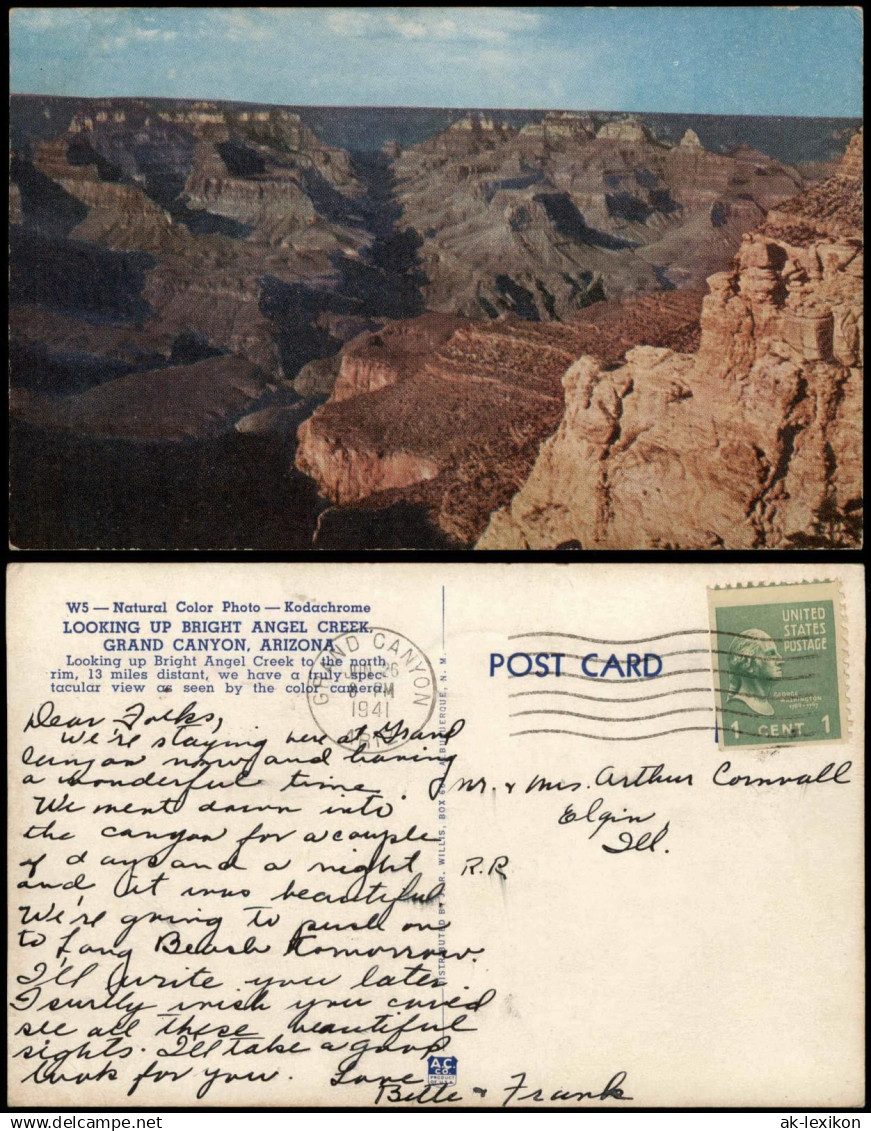 W5 — Natural Color Photo — Kodachrome
LOOKING UP BRIGHT ANGEL CREEK,
GRAND CANYON, ARIZONA
Looking up Bright Angel Creek to the north
rim, 13 miles distant, we have a truly spec-
tacular view as seen by the color camera.
GRAND CANYON
26
1941
ARIZ
POST CARD
UNITED
STATES
POSTAGE
GEORGE
WASHINGTON
1789-1797
1 CENT 1
Dear Folks,
We're staying here at Grand
Canyon now and having
a wonderful time.
We went down into
the canyon for a couple
of days and a night
and it was beautiful
We're going to push on
to Long Beach tomorrow.
I'll write you later
I surely wish you could
see all these beautiful
sights. I'll take a good
look for you. Love
Bette & Frank
Mr. & Mrs. Arthur Cornwall
Elgin,
Ill.
R.R
DISTRIBUTED BY J. R. WILLIS, BOX 66 ALBUQUERQUE, N. M.
A.C.
CO.
ak-lexikon